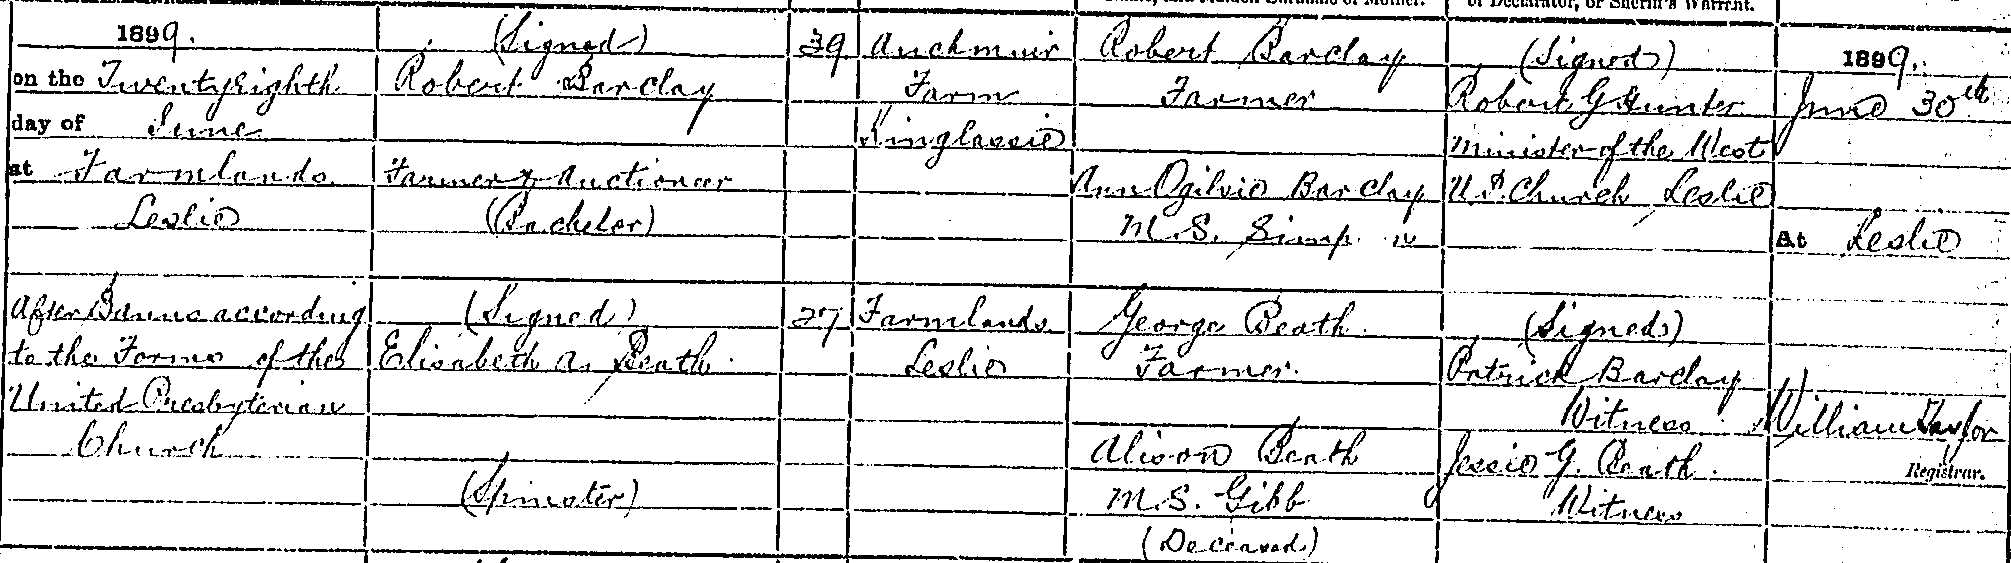 or Declarator, or Sheriff's Warrant.
1899.
on the Twenty eighth
day of June
at Farmlands
Leslie
After Banns according
to the Forms of the
United Presbyterian
Church
(Signed)
Robert Barclay
Farmer & Auctioneer
(Bachelor)
(Signed)
Elisabeth A. Beath.
(Spinster)
39
27
Auchmuir
Farm
Kinglassie
Farmlands
Leslie
Robert Barclay
Farmer
Ann Ogilvie Barclay
M.S. Simp
George Beath.
Farmer.
Alison Beath
M.S. Gibb
(Deceased)
(Signed)
Robert G Hunter
Minister of the West
U.P. Church, Leslie
(Signed)
Patrick Barclay
Witness
Jessie G. Beath.
Witness
1899.
June 30th
At Leslie
William Taylor
Registrar.